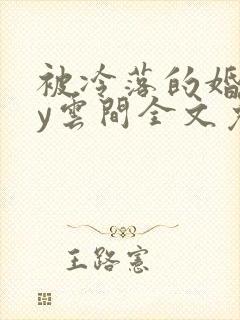 被冷落的婚
y雲間全文
王路憲